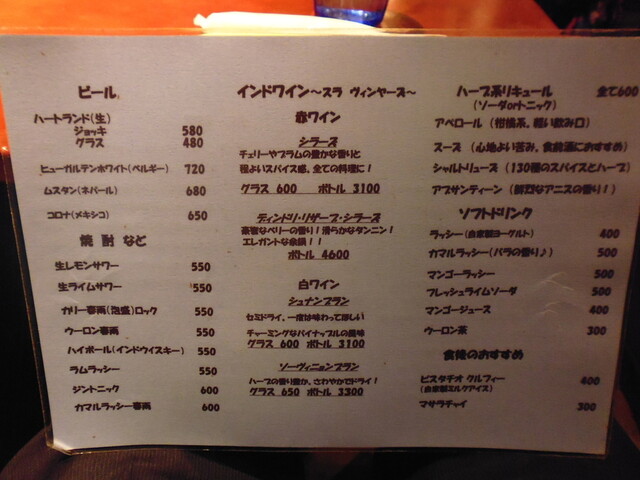 ビール
ハートランド(生)
ジョッキ 580
グラス 480
ヒューガルデンホワイト(ベルギー) 720
ムスタン(ネパール) 680
コロナ(メキシコ) 650
焼酎 など
生レモンサワー 550
生ライムサワー 550
カリー春雨(泡盛)ロック 550
ウーロン春雨 550
ハイボール(インドウイスキー) 550
ラムラッシー 550
ジントニック 600
カマルラッシー春雨 600
インドワイン～スラ ヴィンヤーズ～
赤ワイン
シラーズ
チェリーやプラムの豊かな香りと
程よいスパイス感、全ての料理に!
グラス 600 ボトル 3100
ディンドリ・リザーブ・シラーズ
豪密なベリーの香り!滑らかなタンニン!
エレガントな余韻!!
ボトル 4600
白ワイン
シュナンブラン
セミドライ、一度は味わって欲しい
チャーミングなパイナップルの風味
グラス 600 ボトル 3100
ソーヴィニョンブラン
ハーブの香り豊か、さわやかでドライ!
グラス 650 ボトル 3300
ハーブ系リキュール 全て600
(ソーダorトニック)
アペロール (柑橘系、軽い飲み口)
スーズ (心地よい苦み、食前酒におすすめ)
シャルトリューズ (130種のスパイスとハーブ)
アブサンティーン (鮮烈なアニスの香り!)
ソフトドリンク
ラッシー(自家製ヨーグルト) 400
カマルラッシー(バラの香り♪) 500
マンゴーラッシー 500
フレッシュライムソーダ 500
マンゴージュース 400
ウーロン茶 300
食後のおすすめ
ピスタチオ クルフィー 400
(自家製ミルクアイス)
マサラチャイ 300